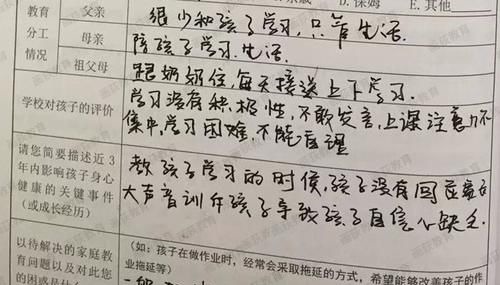 D. 保姆 E. 其他
教育
分工
情况
父亲
很少和孩子学习,只靠生活.
母亲
陪孩子学习.生活.
祖父母
跟奶奶住,每天接送上下学习.
学校对孩子的评价
学习没有积极性,不敢发言,上课注意力不
集中,学习困难,不能自理
请您简要描述近3
年内影响孩子身心
健康的关键事件
(或成长经历)
教孩子学习的时候,孩子没有回
大声音训斥孩子导致孩子自信心缺乏.
以待解决的家庭教
育问题以及对此您
的困惑是什
(如:孩子在做作业时,经常会采取拖延的方式,希望能够改善孩子的作
业拖延等)
画荻教育